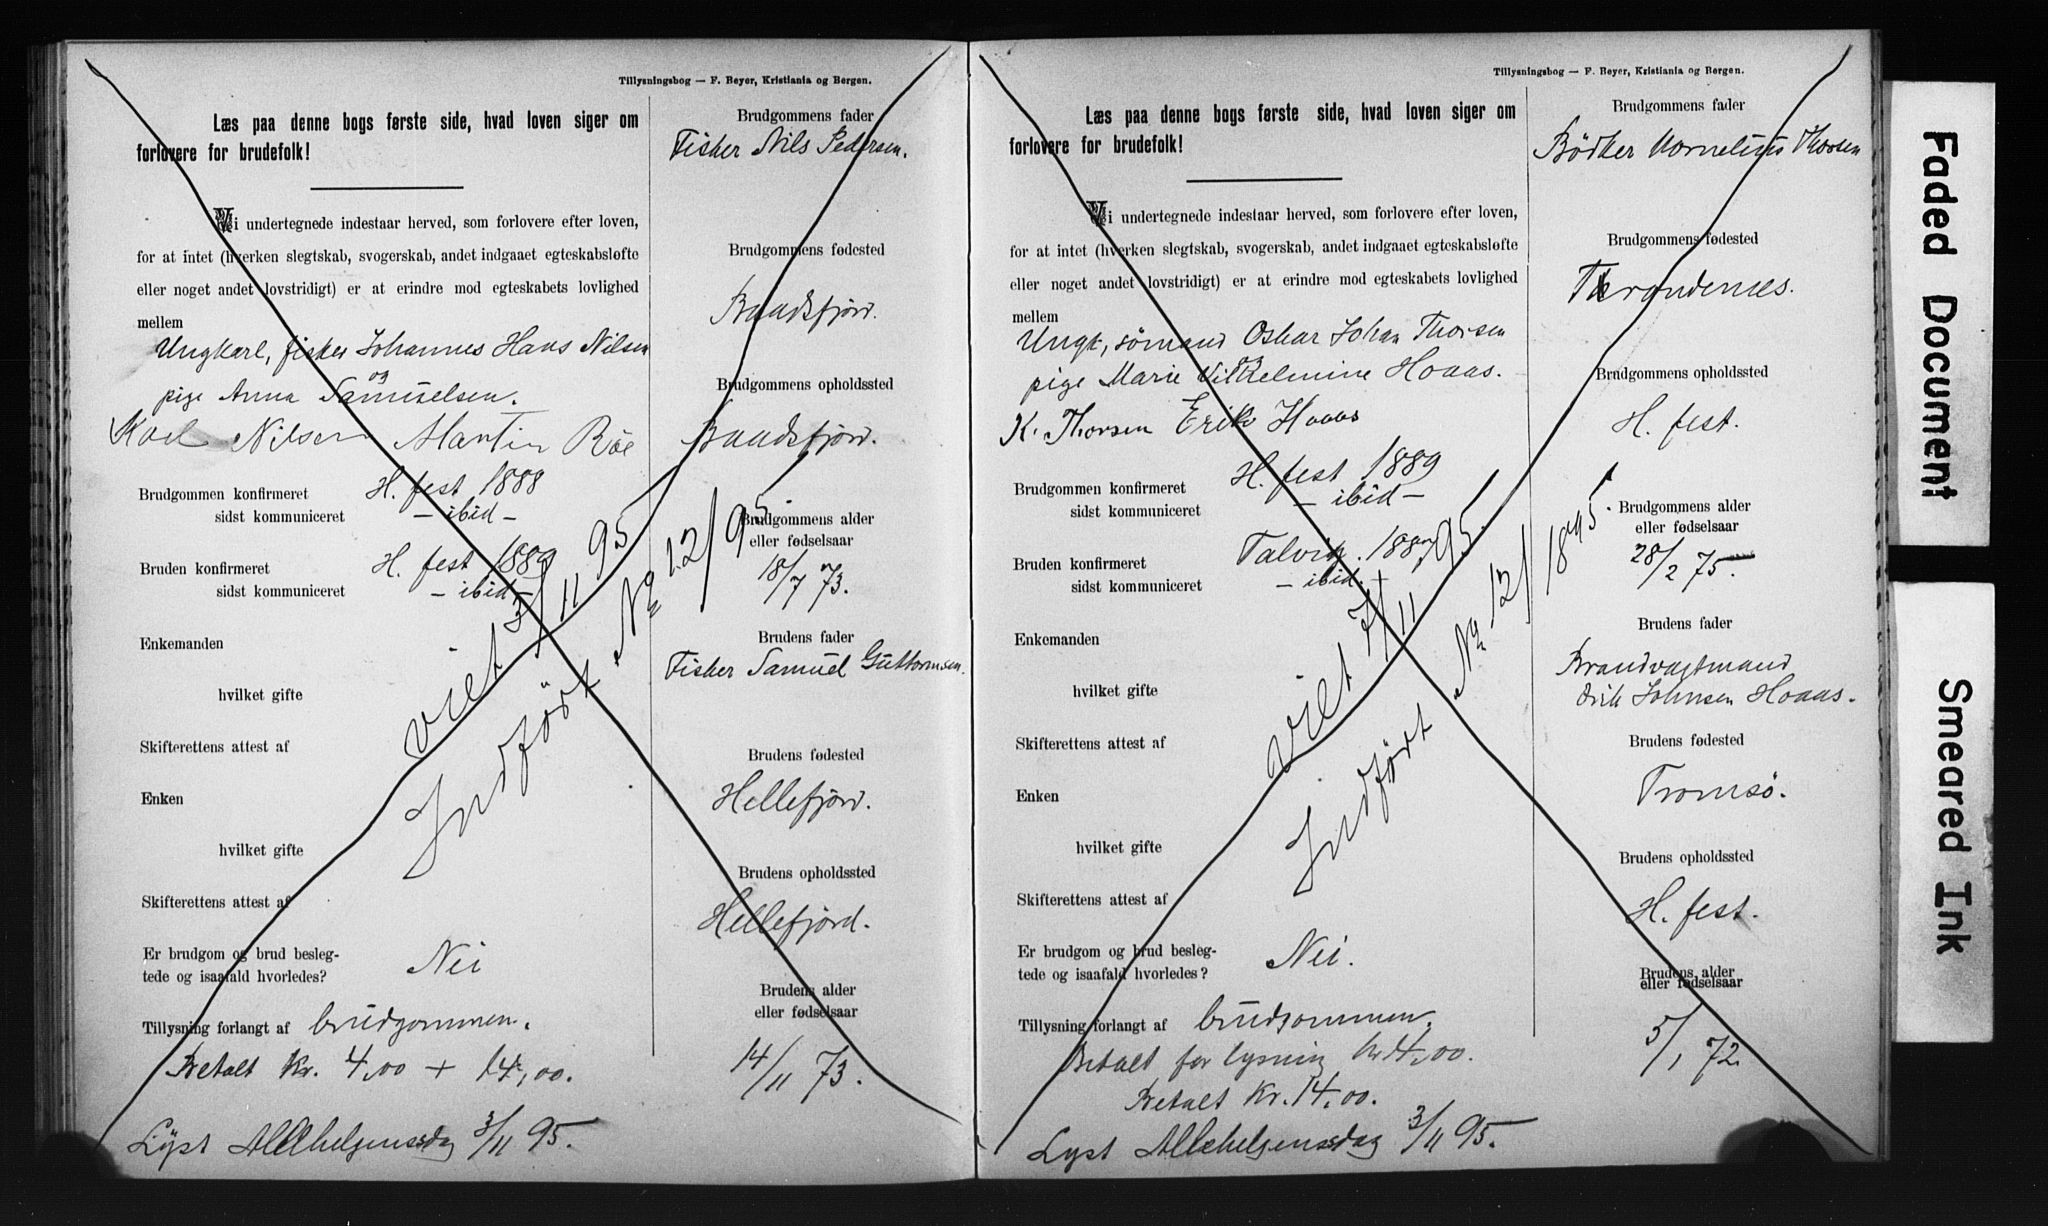 Tillysningsbog — F. Beyer, Kristiania og Bergen.
Læs paa denne bogs første side, hvad loven siger om
forlovere for brudefolk!
Vi undertegnede indestaar herved, som forlovere efter loven,
for at intet (hverken slegtskab, svogerskab, andet indgaaet egteskabsløfte
eller noget andet lovstridigt) er at erindre mod egteskabets lovlighed
mellem
Ungkarl, fisker Johannes Hans Nilsen
og
pige Anna Samuelsen.
Karl Nilsen Martin Röe
Brudgommen konfirmeret H. fest 1888
sidst kommuniceret — ibid —
Bruden konfirmeret H. fest 1889
sidst kommuniceret — ibid —
Enkemanden
hvilket gifte
Skifterettens attest af
Enken
hvilket gifte
Skifterettens attest af
Er brudgom og brud besleg-
tede og isaafald hvorledes? Nei
Tillysning forlangt af brudgommen.
Betalt kr. 4,00 + 14,00.
Lyst Allehelgenssdag 3/11 95.
viet 3/11 95
Indført No 12/95.
Brudgommens fader
Fisker Nils Pedersen.
Brudgommens fødested
Baadsfjord.
Brudgommens opholdssted
Baadsfjord.
Brudgommens alder
eller fødselsaar
18/7 73.
Brudens fader
Fisker Samuel Guttormsen.
Brudens fødested
Hellefjord.
Brudens opholdssted
Hellefjord.
Brudens alder
eller fødselsaar
14/11 73.
Tillysningsbog — F. Beyer, Kristiania og Bergen.
Læs paa denne bogs første side, hvad loven siger om
forlovere for brudefolk!
Vi undertegnede indestaar herved, som forlovere efter loven,
for at intet (hverken slegtskab, svogerskab, andet indgaaet egteskabsløfte
eller noget andet lovstridigt) er at erindre mod egteskabets lovlighed
mellem
Ungk, sömand Oskar Johan Thorsen
og
pige Marie Vilhelmine Hoaas.
K. Thorsen Erik Hoaas
Brudgommen konfirmeret H. fest 1889
sidst kommuniceret — ibid —
Bruden konfirmeret Talvig.
sidst kommuniceret — ibid. —
Enkemanden
hvilket gifte
Skifterettens attest af
Enken
hvilket gifte
Skifterettens attest af
Er brudgom og brud besleg-
tede og isaafald hvorledes? Nei.
Tillysning forlangt af brudgommen.
Betalt for lysning kr 4,00.
Betalt kr. 14,00.
Lyst Allehelgenssdag 3/11 95.
viet 7/11 95.
Indført No 12/1895.
Brudgommens fader
Bödker Kornelius Thorsen
Brudgommens fødested
Trondenes.
Brudgommens opholdssted
H. fest.
Brudgommens alder
eller fødselsaar
28/2 75.
Brudens fader
Brandvagtmand
Erik Johnsen Hoaas.
Brudens fødested
Tromsö.
Brudens opholdssted
H. fest.
Brudens alder
eller fødselsaar
5/1 72.
Faded Document
Smeared Ink